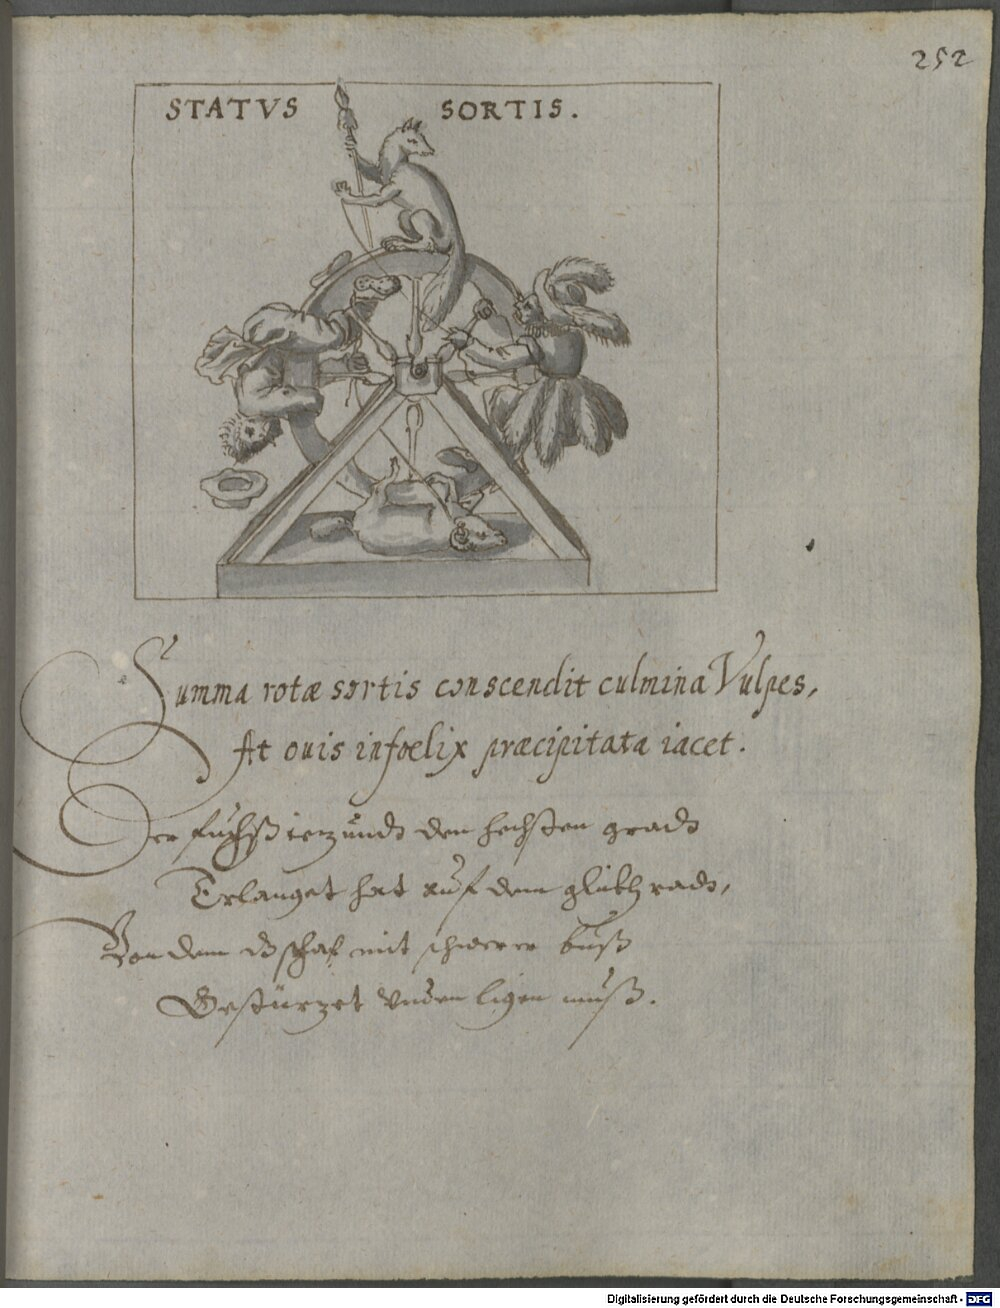 252
STATVS SORTIS.
Summa rotæ sortis conscendit culmina Vulpes,
At ouis infoelix præcipitata iacet.
Der fuchß ietzundt den hechsten gradt
Erlanget hat auf dem glückh radt,
Von dem dz schaf mit schwerer buß
Gestürzet vnden ligen muß.
Digitalisierung gefördert durch die Deutsche Forschungsgemeinschaft - DFG